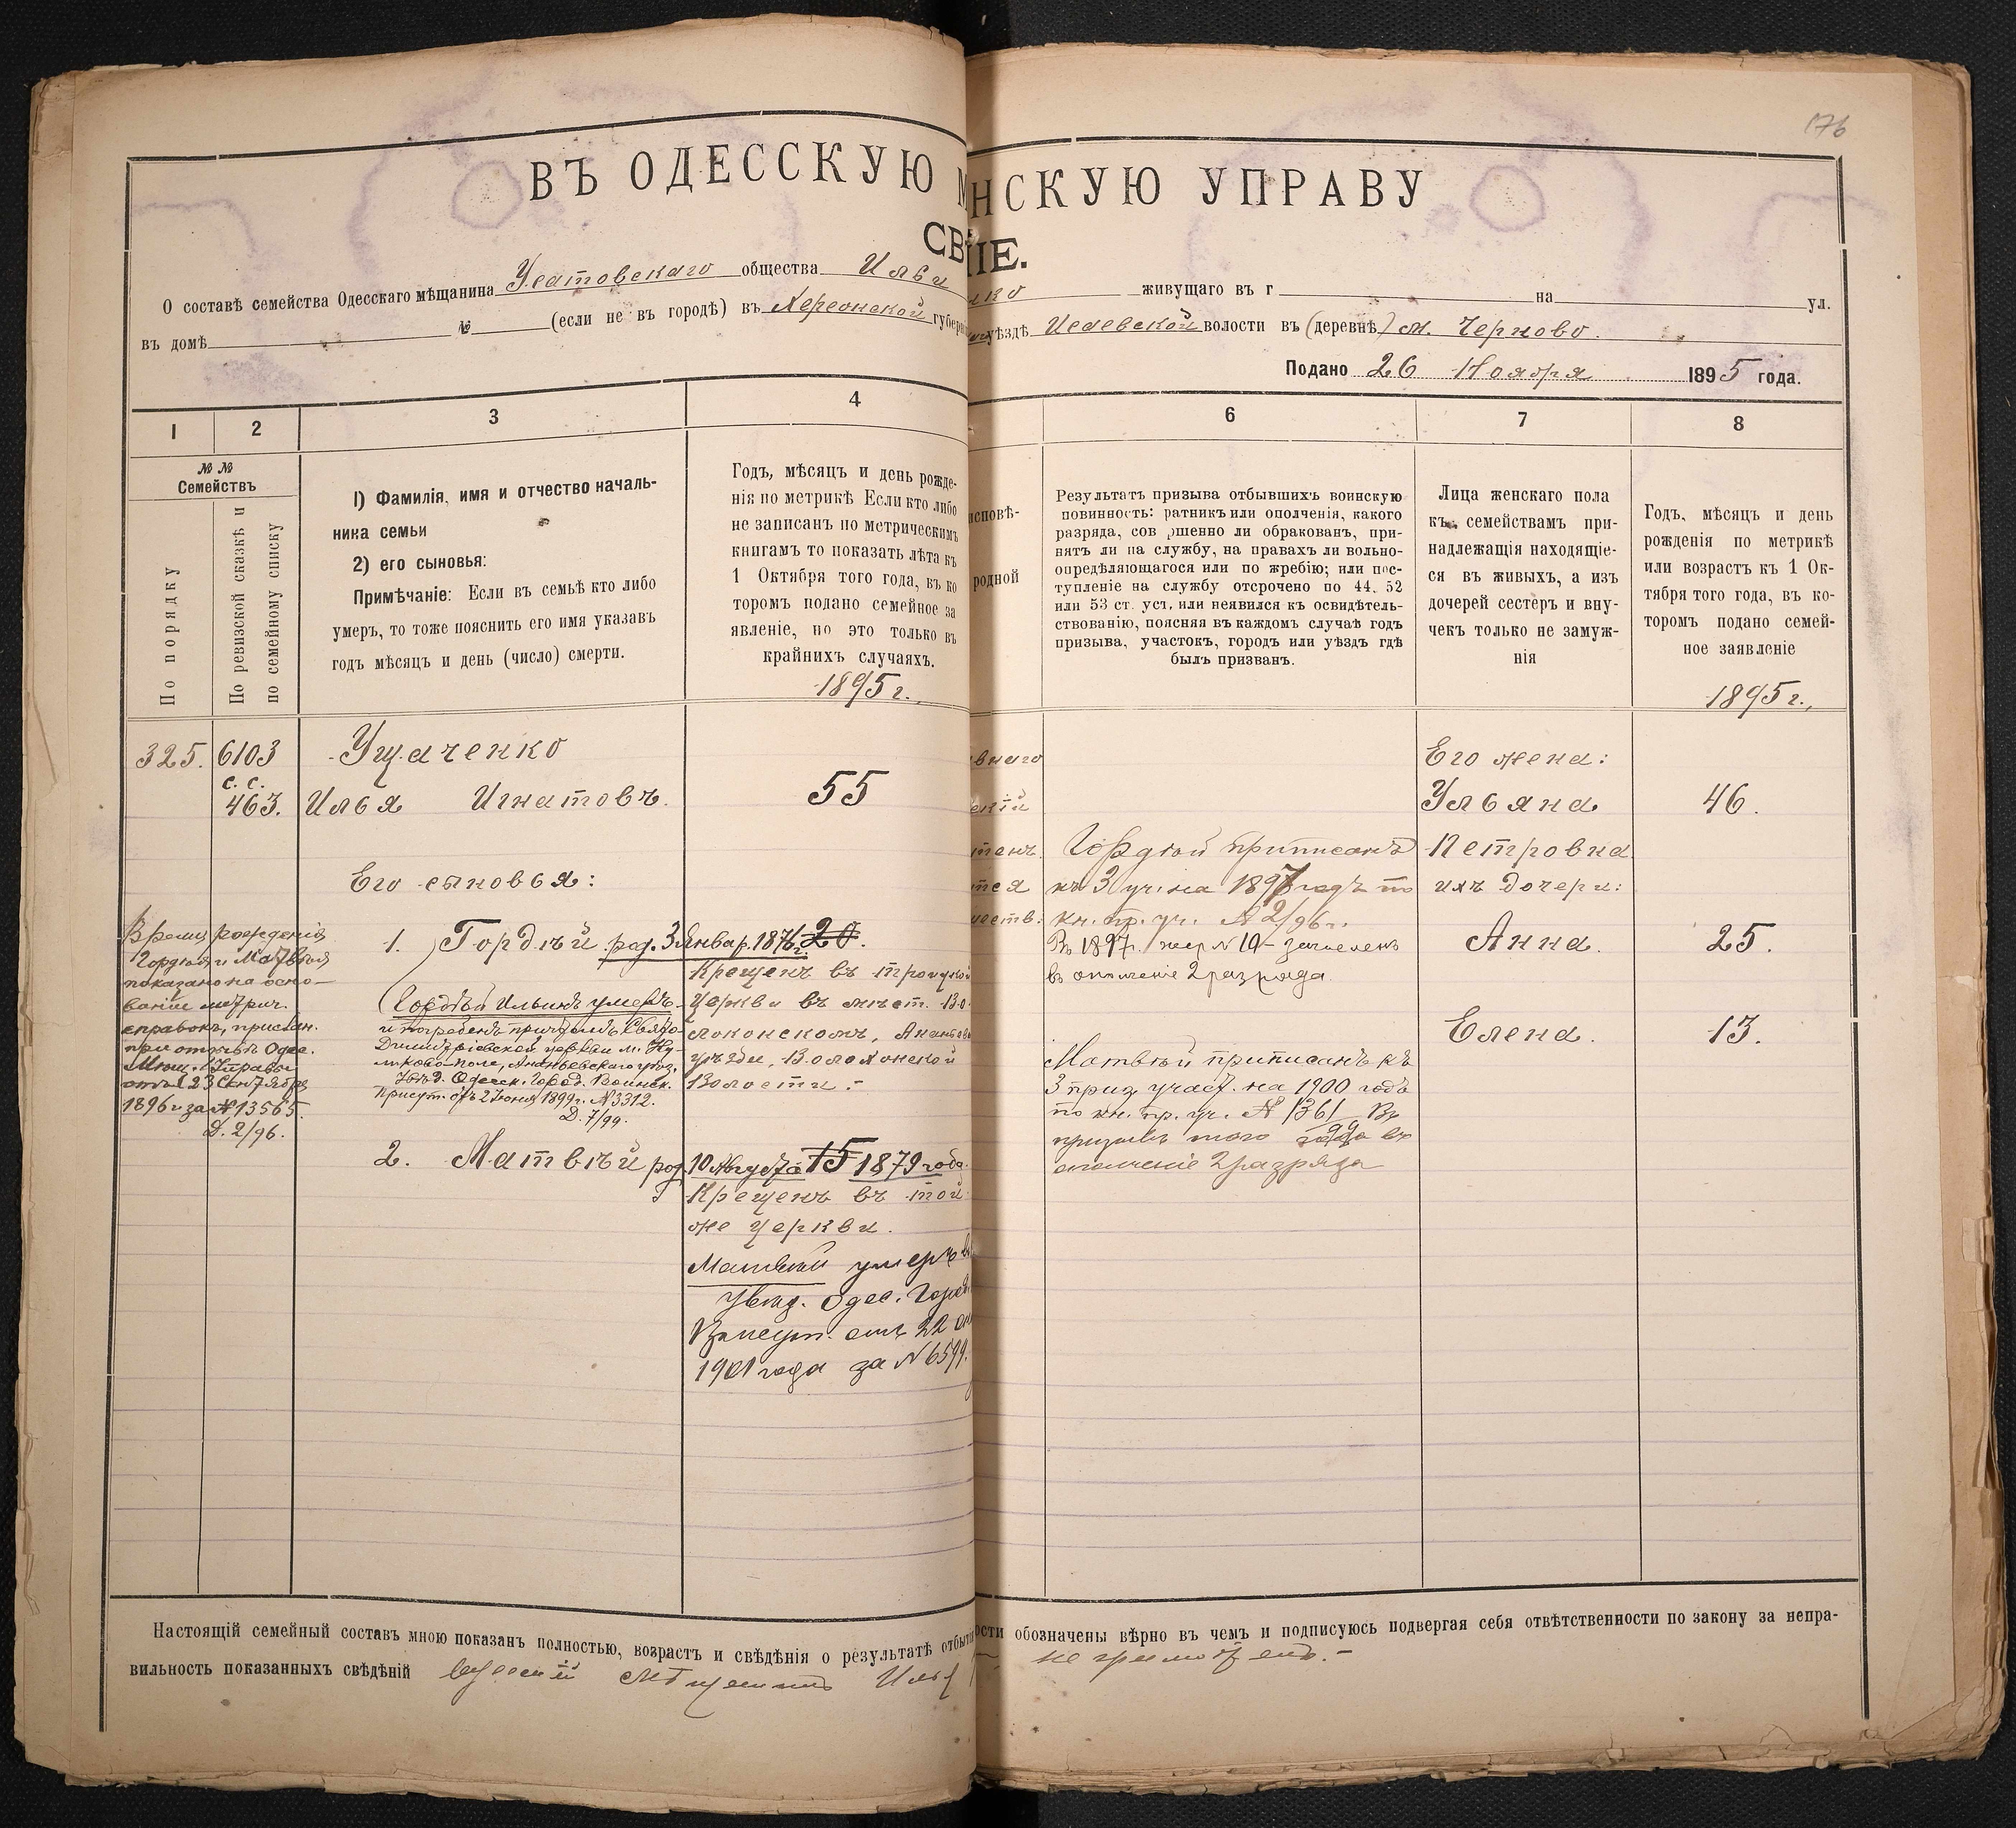 176
ВЪ ОДЕССКУЮ М НСКУЮ УПРАВУ
СВ ІЕ.
О составѣ семейства Одесскаго мѣщанина Усатовскаго общества Ильи нко живущаго въ г на ул.
въ домѣ № (если не въ городѣ) въ Херсонской губерн уѣздѣ Исаевской волости въ (деревнѣ) м. Черново.
Подано 26 Ноября 1895 года.
1 2 3 4 6 7 8
№ № Семействъ
По порядку
По ревизской сказкѣ и по семейному списку
1) Фамилія, имя и отчество началь-
ника семьи
2) его сыновья:
Примѣчаніе: Если въ семьѣ кто либо
умеръ, то тоже пояснить его имя указавъ
годъ мѣсяцъ и день (число) смерти.
Годъ, мѣсяцъ и день рожде-
нія по метрикѣ Если кто либо
не записанъ по метрическимъ
книгамъ то показать лѣта къ
1 Октября того года, въ ко
торомъ подано семейное за
явленіе, но это только въ
крайнихъ случаяхъ.
1895 г.
исповѣ-
родной
Результатъ призыва отбывшихъ воинскую
повинность: ратникъ или ополченія, какого
разряда, сов ршенно ли обракованъ, при-
нятъ ли на службу, на правахъ ли вольно-
опредѣляющагося или по жребію; или пос-
тупленіе на службу отсрочено по 44, 52
или 53 ст. уст, или неявился къ освидѣтель-
ствованію, поясняя въ каждомъ случаѣ годъ
призыва, участокъ, городъ или уѣздъ гдѣ
былъ призванъ.
Лица женскаго пола
къ семействамъ при-
надлежащія находящіе-
ся въ живыхъ, а изъ
дочерей сестеръ и вну-
чекъ только не замуж-
нія
Годъ, мѣсяцъ и день
рожденія по метрикѣ
или возрастъ къ 1 Ок-
тября того года, въ ко-
торомъ подано семей-
ное заявленіе
1895 г.
325. 6103 Ущаченко
с. с.
463. Илья Игнатовъ. 55
Его сыновья:
1. Гордѣй род. 3 Январ. 1876 г. 20.
Крещенъ въ троицкой
церкви въ мѣст.
Ананьев
уѣзда,
Волости.-
Время рожденія
Гордѣя и Матвѣя
показано на осно-
ваніи метрич.
справокъ, прислан.
при отзывѣ Одес.
Мѣщ. Управы
отъ 23 Сентября
1896 г за № 13565.
Д. 2/96.
Гордѣй Ильинъ умеръ
и погребенъ причтомъ Свято-
Димитріевской церкви м. Ку-
ликово поле, Ананьевскаго уѣз,
Увѣд. Одесск. Город. Воинск.
Присут. отъ 2 Іюня 1899 г. № 3312.
Д. 7/99.
2. Матвѣй род. 10 Августа 15 1879 года.
Крещенъ въ той
же церкви.
Матвѣй умеръ
увѣд. Одес. Город.
отъ 22
1901 года за № 6599.
внаго
тся
Гордѣй приписанъ
къ 3 уч. на 1897 годъ по
кн. пр. уч. № 2/96 г.
Въ 1897 г. жер № 10 - зачисленъ
въ ополченіе 2 разряда.
Матвѣй приписанъ къ
3 приз. участ. на 1900 годъ
по кн. пр. уч. № 1361 Въ
призывѣ того года въ
ополченіе 2 разряда
Его жена:
Ульяна 46.
Петровна
ихъ дочери:
Анна. 25.
Елена. 13.
Настоящій семейный составъ мною показанъ полностью, возрастъ и свѣдѣнія о результатѣ отбыт ости обозначены вѣрно въ чемъ и подписуюсь подвергая себя отвѣтственности по закону за непра-
вильность показанныхъ свѣдѣній Одесскій Мѣщанинъ Илья неграмотенъ.-